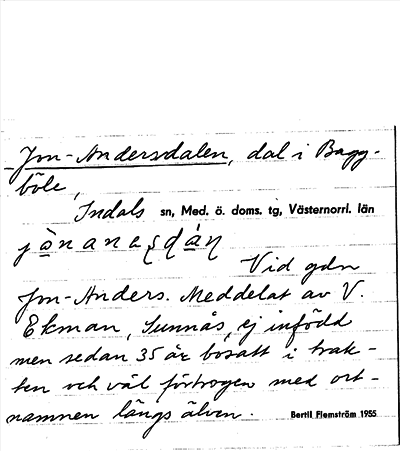 Jon-Andersdalen, dal i Bagg-
böle,
Indals sn, Med. ö. doms. tg, Västernorrl. län
Vid gdn
Jon-Anders. Meddelat av V.
Ekman, Sunnås, ej infödd
men sedan 35 år bosatt i trak-
ten och väl förtrogen med ort-
namnen längs älven. Bertil Flemström 1955